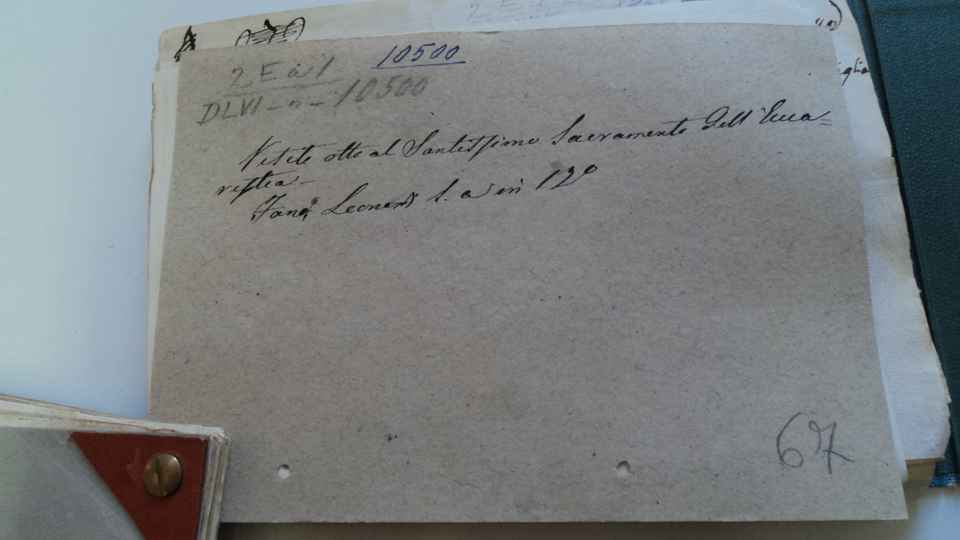 2 E a 1 10500
DLVI - n - 10500
Visite otto al Santissimo Sacramento dell' Euca=
ristia -
Fano, Leonardi s. a in 12º
67